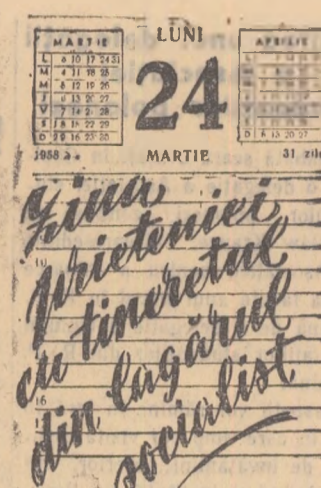 LUNI
MARTIE
APRILIE
24
L 3 10 17 24 31
M 4 11 18 25
M 5 12 19 26
J 6 13 20 27
V 7 14 21 28
S 1 8 15 22 29
D 2 9 16 23 30
D 6 13 20 27
1958
MARTIE
31 zile
Ziua
prieteniei
cu tineretul
din lagărul
socialist